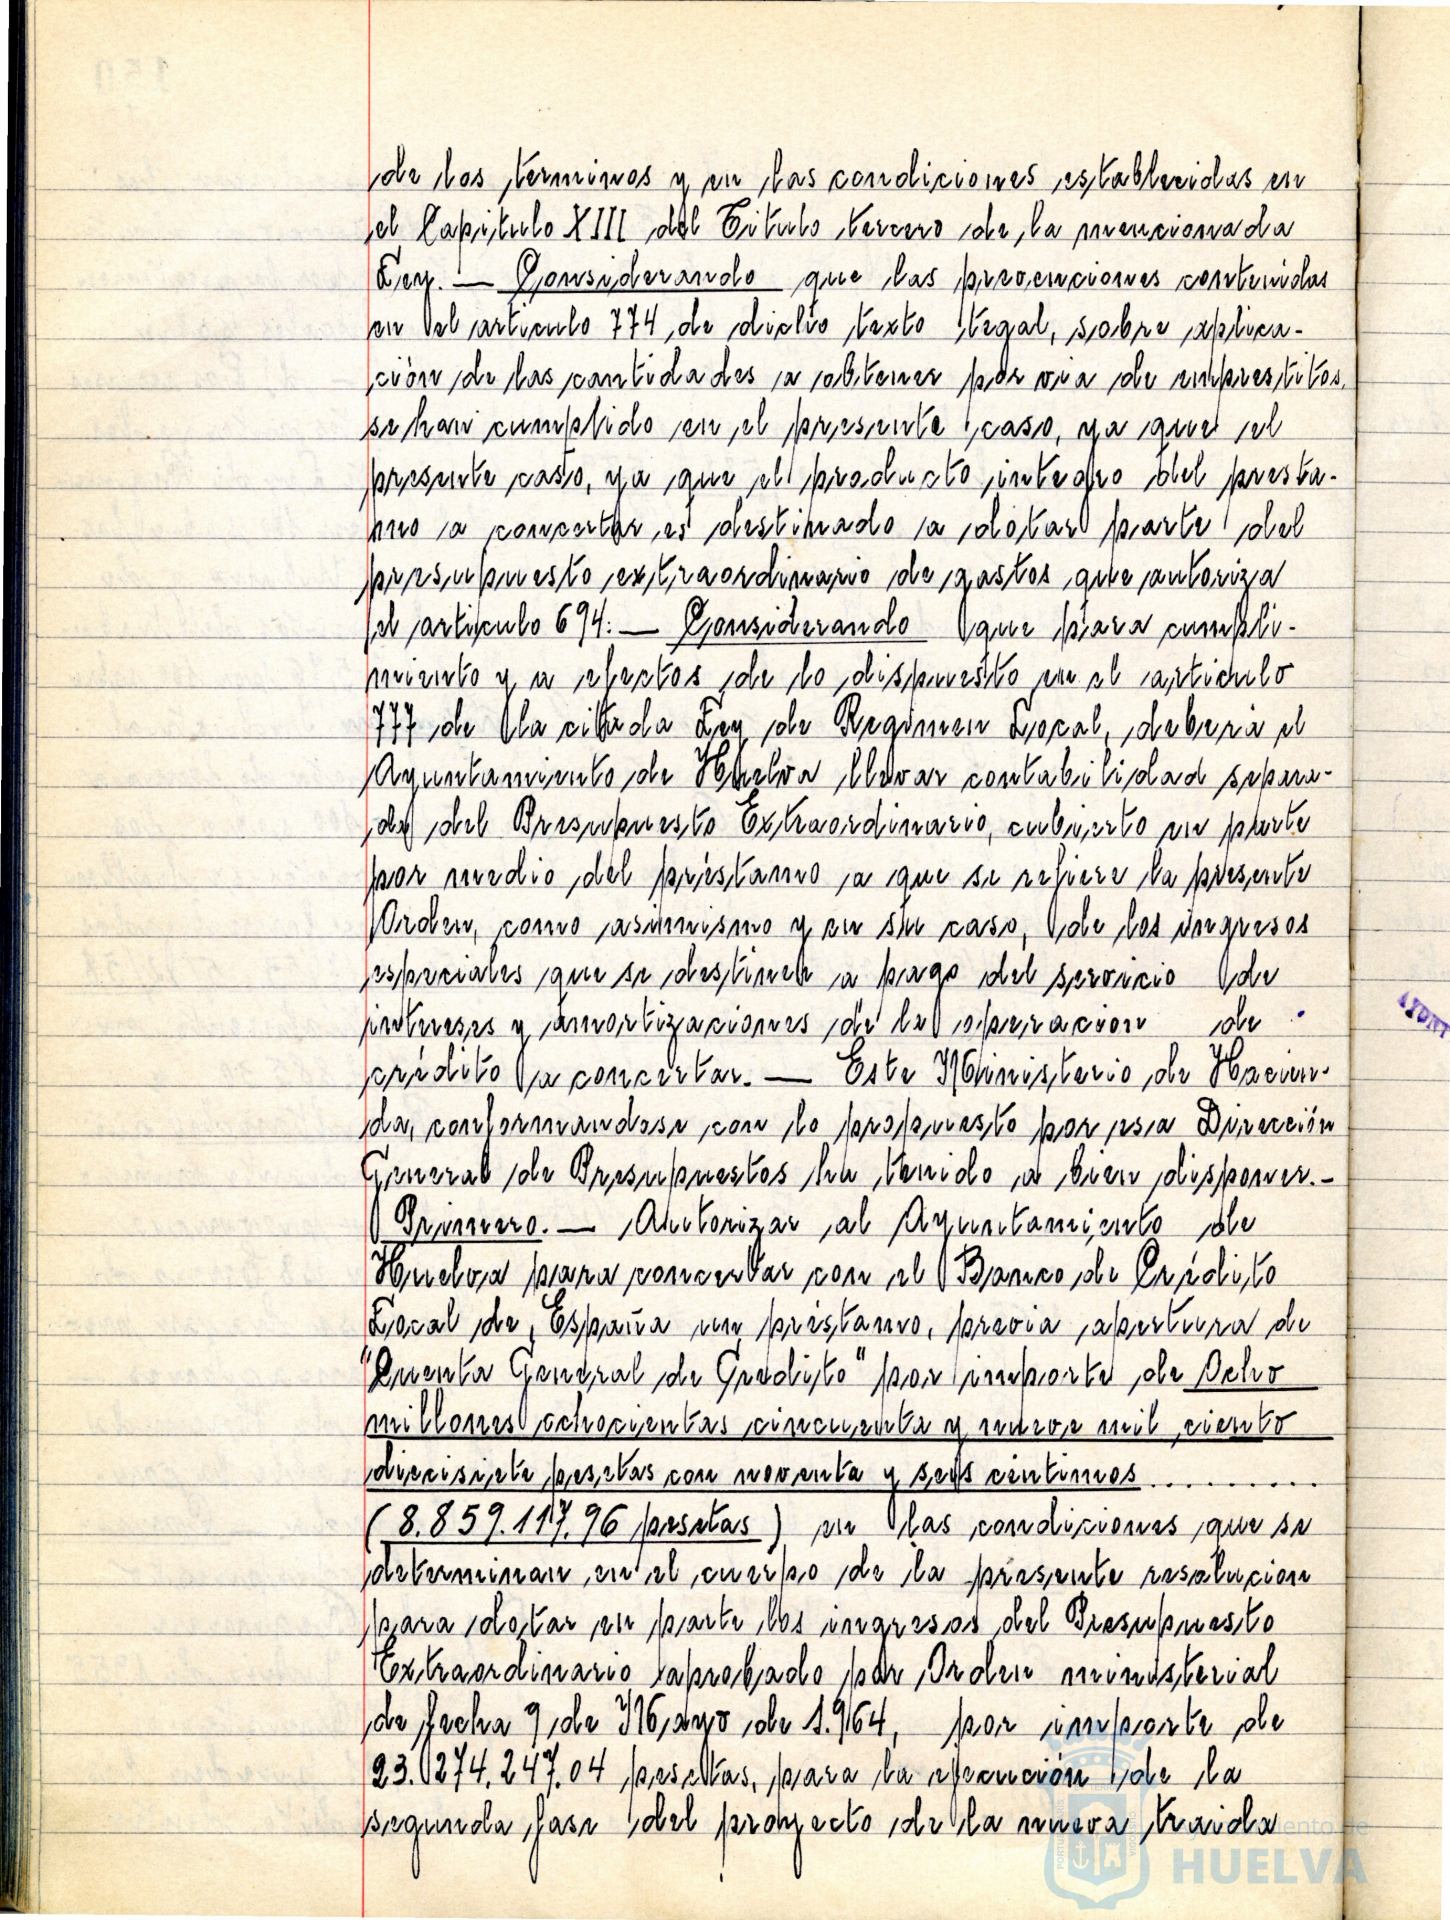 de los terminos y en las condiciones establecidas en
el Capitulo XIII del Titulo tercero de la mencionada
Ley. — Considerando que las prevenciones contenidas
en el articulo 774 de dicho texto legal, sobre aplica-
ción de las cantidades a obtener por via de emprestitos,
se han cumplido en el presente caso, ya que el
presente caso, ya que el producto integro del presta-
mo a concertar es destinado a dotar parte del
presupuesto extraordinario de gastos que autoriza
el articulo 694: — Considerando que para cumpli-
miento y a efectos de lo dispuesto en el articulo
777 de la citada Ley de Regimen Local, deberá el
Ayuntamiento de Huelva llevar contabilidad separa-
da del Presupuesto Extraordinario, cubierto en parte
por medio del préstamo a que se refiere la presente
Orden, como asimismo y en su caso, de los ingresos
especiales que se destinen a pago del servicio de
intereses y amortizaciones de la operacion de
crédito a concertar. — Este Ministerio de Hacien-
da, conformandose con lo propuesto por esa Dirección
General de Presupuestos ha tenido a bien disponer.-
Primero. — Autorizar al Ayuntamiento de
Huelva para concertar con el Banco de Crédito
Local de España un préstamo, previa apertura de
"Cuenta General de Credito" por importe de Ocho
millones ochocientas cincuenta y nueve mil ciento
diecisiete pesetas con noventa y seis centimos.........
(8.859.117,96 pesetas) en las condiciones que se
determinan en el cuerpo de la presente resolucion
para dotar en parte los ingresos del Presupuesto
Extraordinario aprobado por Orden ministerial
de fecha 9 de Mayo de 1.964, por importe de
23.274.247,04 pesetas, para la ejecución de la
segunda fase del proyecto de la nueva traida
HUELVA